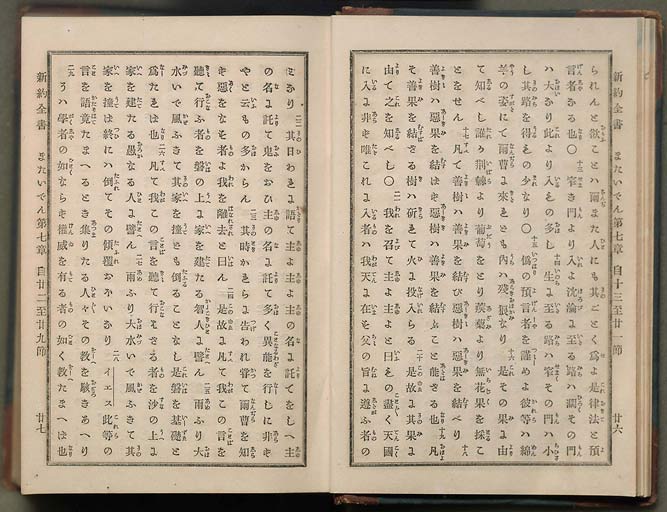 新約全書 またいでん第七章 自十三至廿一節 廿六
られんと欲ことハ爾また人にも其ごとく爲よ是律法と預
言者なる也〇十三窄き門より入れよ沈淪に至る路ハ濶その門
ハ大なり此より入もの多し十四生に至る路ハ窄その門ハ小
し其路を得もの少なり〇十五僞の預言者を謹めよ彼等ハ綿
羊の姿にて爾曹に來れども內ハ殘狼なり十六是その果に由
て知べし誰か荊棘より葡萄をとり蒺藜より無花果を採こ
とをせん十七凡て善樹ハ善果を結び惡樹ハ惡果を結べり十八
善樹ハ惡果を結はず惡樹ハ善果を結ぶこと能ざる也十九凡
そ善果を結ざる樹ハ斫れて火に投入らる二十是故に其果に
由て之を知べし〇廿一我を召て主よ主よと曰もの盡く天國
に入に非ず唯これに入者ハ我天に在す父の旨に遵ふ者の
新約全書 またいでん第七章 自廿二至廿九節 廿七
みなり廿二其日われに語て主よ主よ主の名に託てをしへ主
の名に託て鬼をおひ主の名に託て多く異能を行しに非ず
やと云もの多からん廿三其時かれらに告われ嘗て爾曹を知
ず惡をなす者よ我を離去と曰ん廿四是故に凡て我この言を
聽て行ふ者を磐の上に家を建たる智人に譬ん廿五雨ふり大
水いで風ふきて其家を撞ども倒ることなし是磐を基礎と
爲たれは也廿六凡て我この言を聽て行ざる者を沙の上に
家を建たる愚なる人に譬ん廿七雨ふり大水いで風ふきて其
家を撞は終にハ倒てその傾覆おほいなり廿八イエス此等の
言を語竟たまへるとき集りたる人々その教を駭きあへり
廿九そハ學者の如ならず權威を有る者の如く教たまへは也